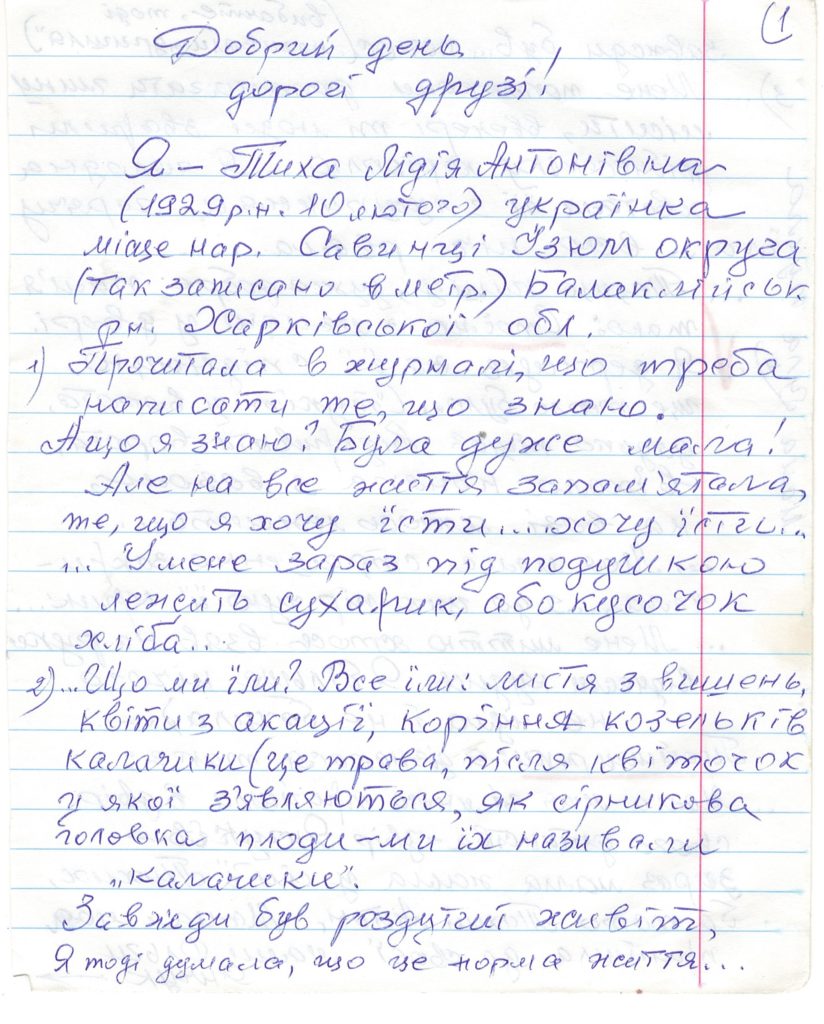 (1
Добрий день
дорогі друзі!
Я – Тиха Лідія Антонівна
(1929 р.н. 10 лютого) українка
місце нар. Савинці Ізюм округа
(так записано в метр.) Балаклійськ
рн. Харківської обл.
1) Прочитала в журналі, що треба
написати те, що знаю.
А що я знаю? Була дуже мала!
Але на все життя запам'ятала,
те, що я хочу їсти... хочу їсти...
... У мене зараз під подушкою
лежить сухарик, або кусочок
хліба..
2) ..Що ми їли? Все їли: листя з вишень,
квіти з акації, коріння козельків
калачики (це трава, після квіточок
у якої з'являються, як сірникова
головка плоди – ми їх називали
„калачики".
Завжди був роздутий живіт,
Я тоді думала, що це норма життя...